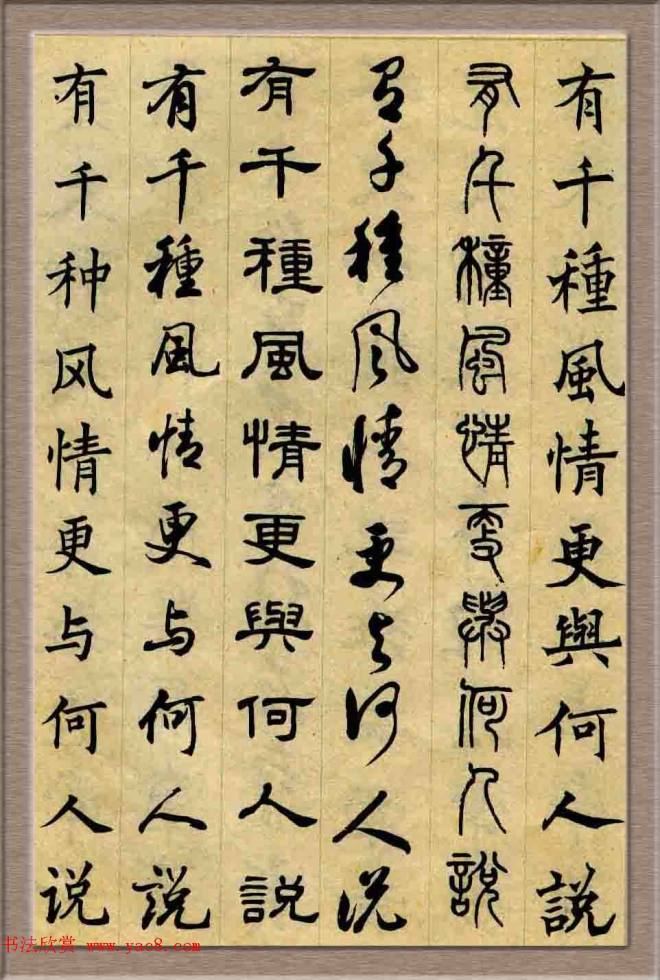 有千種風情更與何人說
有千種風情更與何人說
有千種風情更与何人说
有千種風情更與何人説
有千種風情更与何人説
有千种风情更与何人说
书法欣赏 www.yac8.com